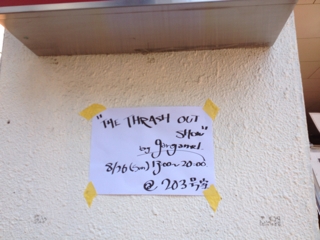 "THE THRASH OUT
SHOW"
by gingamel.
8/26(sun) 13:00~20:00
@ 203号室